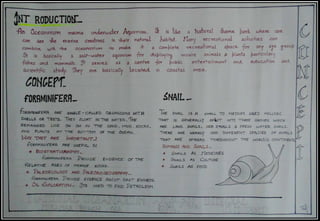 INTRODUCTION...
An Oceanarium means underwater Aquarium. It is like a natural theme park where one
can see the marine creatures in their natural habitat. Many recreational activities can
combine with the oceanarium to make it a complete recreational space for any age group.
It is basically a salt-water aquarium for displaying marine animals & plants particularly
fishes and mammals. It serves as a centre for public entertainment and education and
scientific study. They are basically located in coastal areas.
CONCEPT
FORAMINIFERA
Foraminifera are single-celled organisms with
shells or trests. They float in the water. The
remaining live on or in the sand, mud, rocks,
and plants at the bottom of the ocean.
Why they are important?
Foraminifera are useful in
Biostratigraphy
Foraminifera Provide evidence of the
Relative ages of marine rocks.
Paleoecology and Paleobiogeography
Foraminifera Provide evidence about past environ.
Oil Exploration - Its used to find Petroleum
SNAIL
The snail is a small to medium sized mollusc
that is generally split into three groups which
are land snails, sea snails & fresh water snails.
There are nearly 1000 different species of snails
that are spread throughout the world's continents.
Humans and Snails
Snails as Medicines
Snails as Culture
Snails as Food
CONCEPT